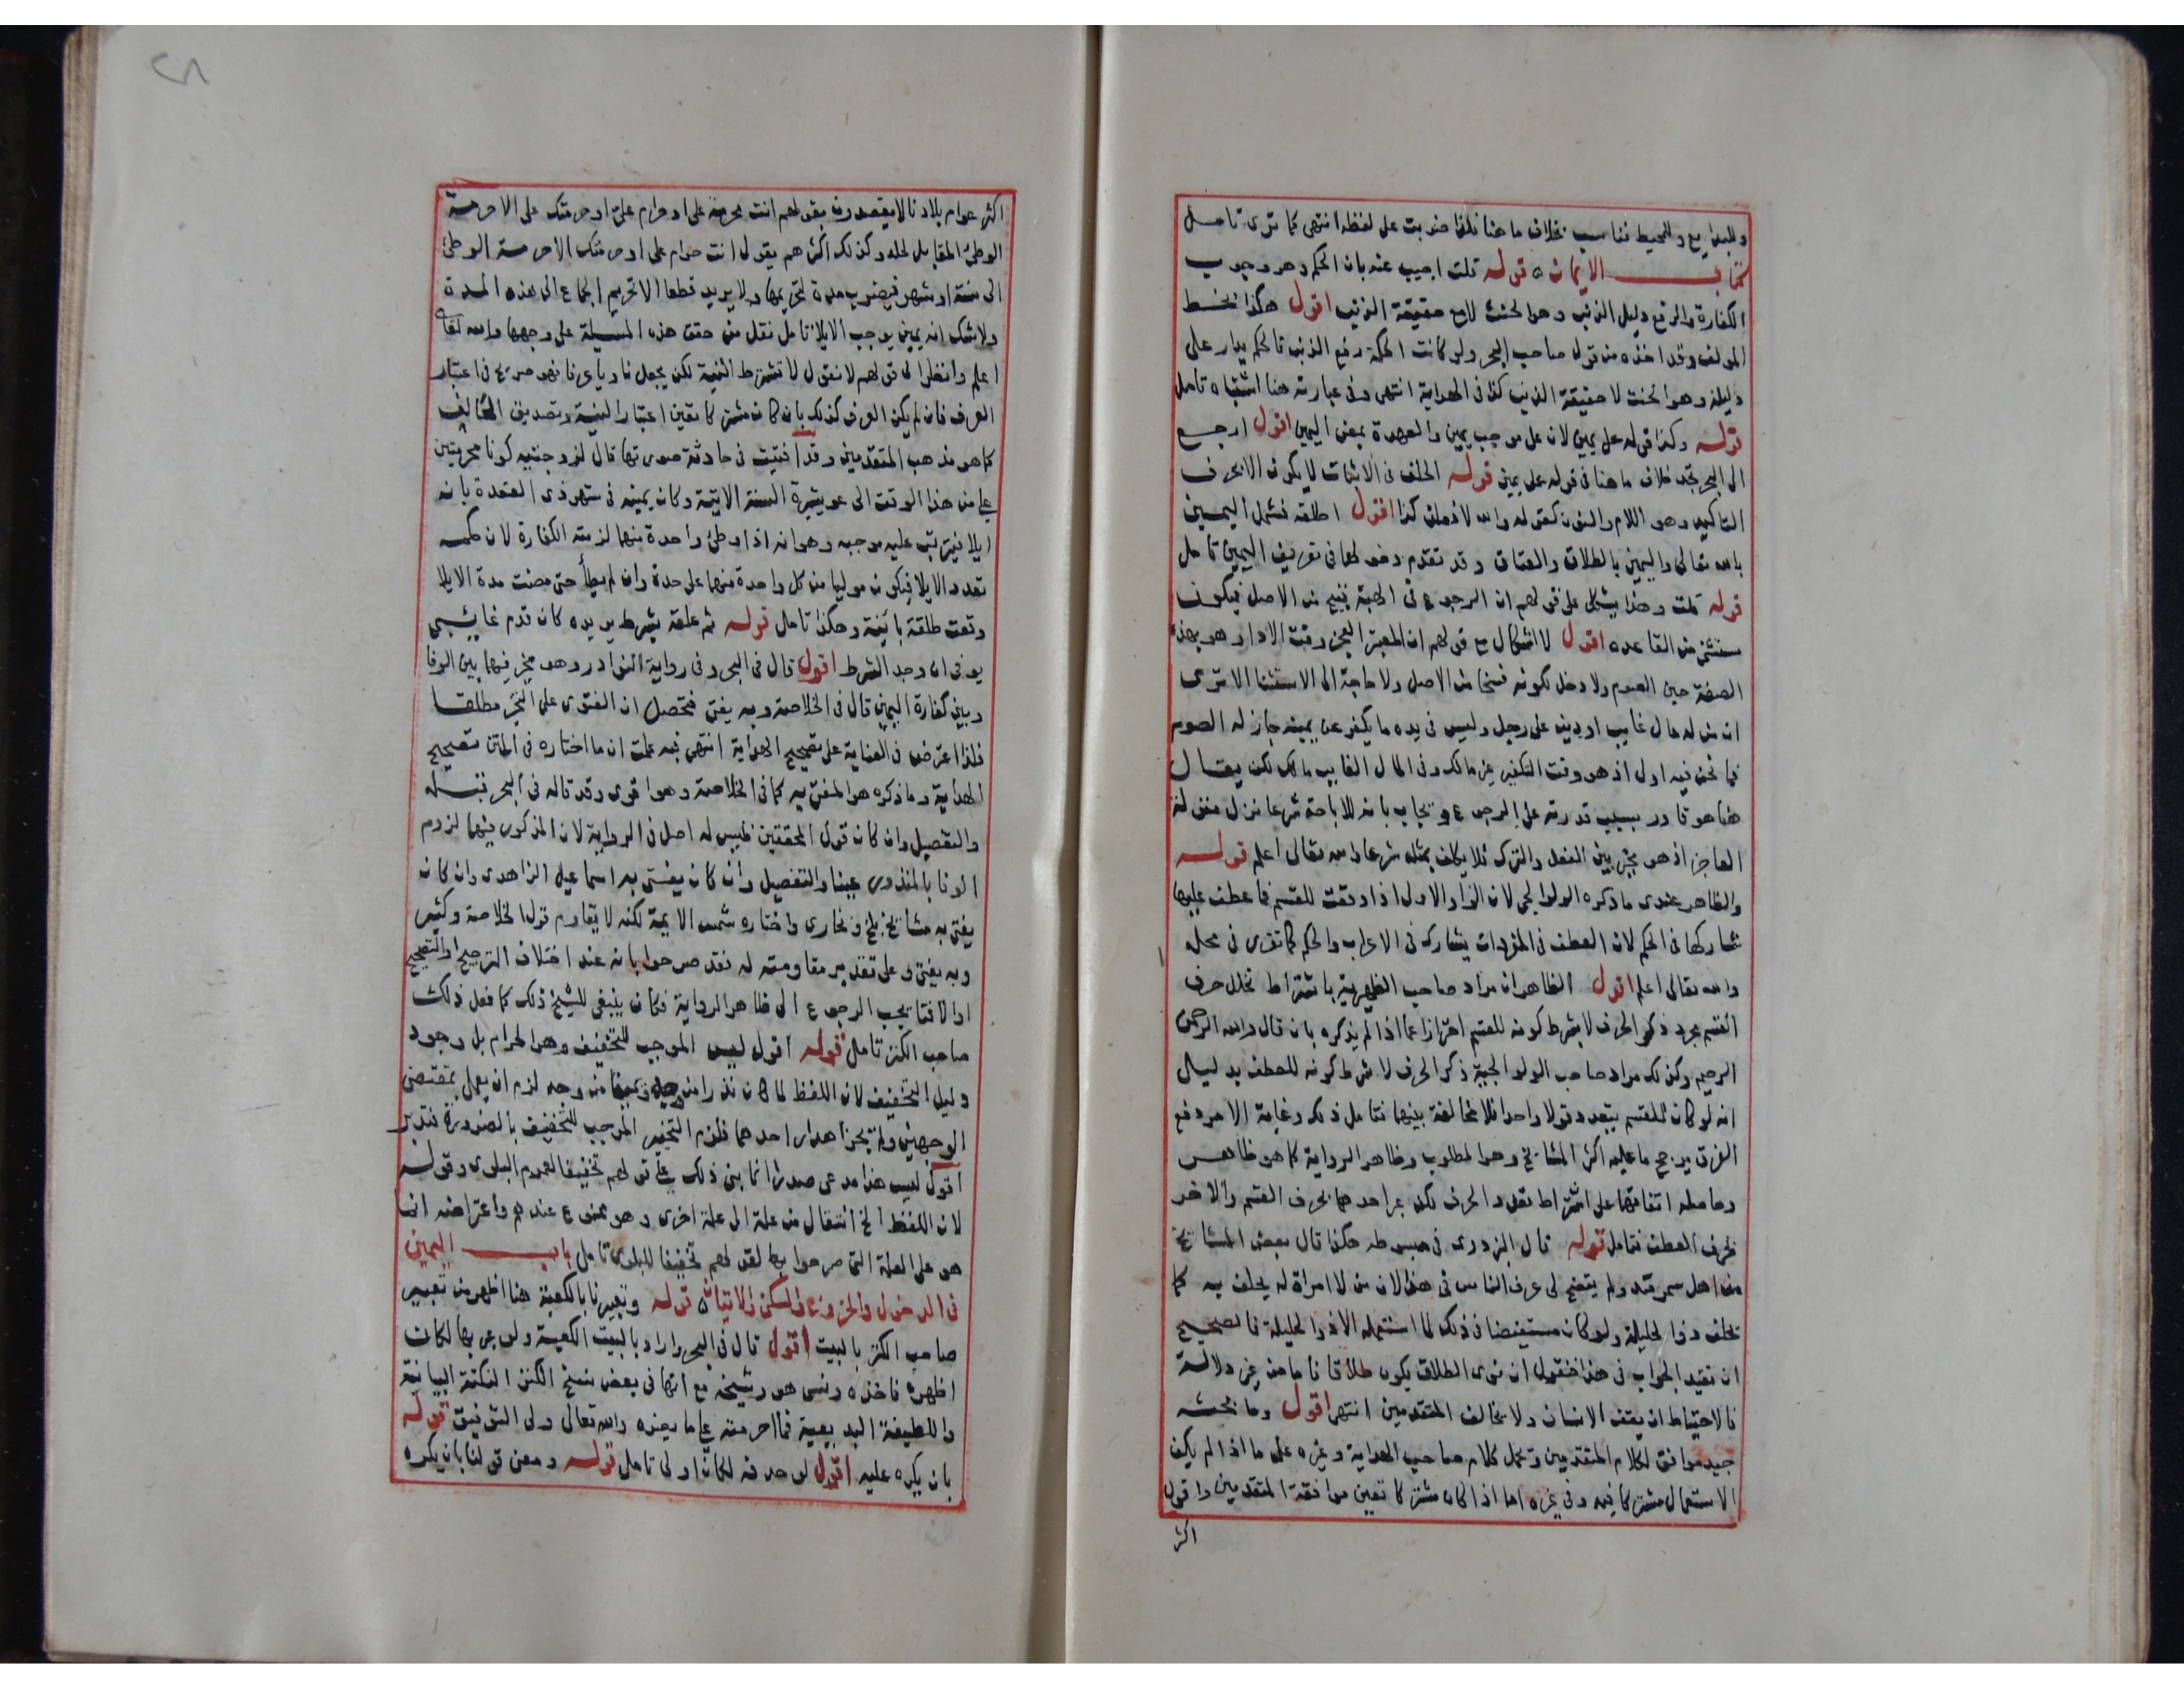 وللبدايع وللمحيط تناسب بخلاف ما هنا فلذا ضربت على لفظه انتهى كما ترى تامل
كتاب الايمان قوله قلت اجيب عنه بان الحكم وهو وجوب
الكفارة والرفع دليل الذنب وهو الحنث لا مع حقيقة الذنب اقول هكذا بخط
المولف وقد اخذه من قول صاحب البحر ولو كانت الحكمة رفع الذنب فالحكم يدار على
دليله وهو الحنث لا حقيقة الذنب كذا في الهداية انتهى وفي عبارته هنا اشتباه تامل
قوله وكذا قوله على يمين لان على موجب يمين والعهدة بمعنى اليمين اقول ارجع
الى البحر تجد خلاف ما هنا في قوله على يمين قوله الحلف في الاثبات لا يكون الا بحرف
التاكيد وهو اللام والنون كقوله والله لافعلن كذا اقول اطلقه فشمل اليمين
بالله تعالى واليمين بالطلاق والعتاق وقد تقدم دخولهما في تعريف اليمين تامل
قوله قلت وهذا يشكل على قولهم ان الرجوع في الهبة فسخ من الاصل فيكون
مستثنى من القاعده اقول لا اشكال مع قولهم ان المعتبر العجز وقت الاداء وهو بهذه
الصفة حين الصوم ولا دخل لكونه فسخا من الاصل ولا حاجة الى الاستثنا الا ترى
ان من له مال غايب او دين على رجل وليس في يده ما يكفر عن يمينه جاز له الصوم
فما نحن فيه اولى اذ هو وقت التكفير غير مالك وفي المال الغايب مالك لكن يقال
هنا هو قادر بسبب قدرته على الرجوع ويجاب بانه للاباحة شرعا نزل منزلة
العاجز اذ هو مخير بين الفعل والترك فلا يكلف بمثله شرعا والله تعالى اعلم قوله
والظاهر عندى ما ذكره الولوالجي لان الواو الاولى اذا وقعت للقسم فما عطف عليها
شاركها في الحكم لان العطف في المفردات يشارك في الاعراب والحكم كما تقرر في محله
والله تعالى اعلم اقول الظاهر ان مراد صاحب الظهيرية باشتراط تخلل حرف
القسم مجرد ذكر الحرف لا بشرط كونه للقسم احترازا عما اذا لم يذكره بان قال والله الرحمن
الرحيم وكذلك مراد صاحب الولوالجية ذكر الحرف لا شرط كونه للعطف بدليل
انه لو كان للقسم يتعدد قولا واحدا فلا مخالفة بينهما فتامل ذلك وغاية الامر دفع
الفرق يرجح ما عليه اكثر المشايخ وهو المطلوب وظاهر الرواية كما هو ظاهر
وحاصله اتفاقهما على اشتراط تعدد الحرف لكن عبر احدهما بحرف القسم والاخر
بحرف العطف فتامل قوله قال البزدوى في مبسوطه هكذا قال بعض المشايخ
من اهل سمرقند ولم يتضح لى عرف الناس في هذا لان من لا امراة له يحلف به كما
يحلف ذو الحليلة ولو كان مستفيضا في ذلك لما استعمله الا ذو الحليلة فالصحيح
ان نقيد الجواب في هذا فنقول ان نوى الطلاق يكون طلاقا فاما من غير دلالة
فالاحتياط ان يقف الانسان ولا يخالف المتقدمين انتهى اقول وما بحثه
جيد موافق لكلام المتقدمين ونحمل كلام صاحب الهداية وغيره على ما اذا لم يكن
الاستعمال مشتركا فيه وفي غيره اما اذا كان مشتركا تعين موافقة المتقدمين واقول
اكثر
٢٨
اكثر عوام بلادنا لا يقصدون بقولهم انت محرمة على او حرام على او حرمتك على الا حرمة
الوطئ المقابل لحله وكذلك اكثرهم يقول انت حرام على او حرمتك الا حرمة الوطئ
الى سنة او شهر فيضرب مدة لتحريمها ولا يريد قطعا الا تحريم الجماع الى هذه المدة
ولا شك انه يمين يوجب الايلا تامل نقل من حقق هذه المسيلة على وجهها والله تعالى
اعلم وانظر الى قولهم لا نقول لا تشترط النية لكن يجعل ناويا عرفا فهو صريح في اعتبار
العرف فان لم يكن العرف كذلك بان كان مشتركا تعين اعتبار النية وتصديق الحالف
كما هو مذهب المتقدمين وقد افتيت في حادثة صورتها قال لزوجتيه كونا محرمتين
على من هذا الوقت الى عويشرة السنة الاتية وكان يمينه في شهر ذى القعدة بانه
ايلا فيترتب عليه موجبه وهو انه اذا وطئ واحدة منهما لزمته الكفارة لان حكمه
تعدد الايلا فيكون موليا من كل واحدة منهما على حدة وان لم يطأ حتى مضت مدة الايلا
وقعت طلقة باينة وهكذا تامل قوله ثم علقه بشرط يريده كان قدم غايبى
يوفى ان وجد الشرط اقول قال في البحر وفي رواية النوادر وهو مخير فيهما بين الوفا
وبين كفارة اليمين قال في الخلاصة وبه يفتى فتحصل ان الفتوى على التخير مطلقا
فلذا اعترض في العناية على تصحيح الهداية انتهى فيه علمت ان ما اختاره في المتن تصحيح
الهداية وما ذكره هو المفتى به كما في الخلاصة وهو اقوى وقد قاله في البحر قبله
والتفصيل وان كان قول المحققين فليس له اصل في الرواية لان المذكور فيهما لزوم
الوفا بالمنذور عينا والتفصيل وان كان يفتى به اسماعيل الزاهدى وان كان
يفتى به مشايخ بلخ وبخارى واختاره شمس الايمة لكنه لا يقاوم قول الخلاصة وكثير
وبه يفتى وعلى تقدير مقاومته له فقد صرحوا بانه عند اختلاف الترجيح والتصحيح
او الافتا يجب الرجوع الى ظاهر الرواية فكان ينبغى للشيخ ذلك كما فعل ذلك
صاحب الكنز تامل قوله اقول ليس الموجب للتخفيف وهو الحرام بل وجود
دليل التخفيف لان اللفظ لما كان نذرا من وجه ويمينا من وجه لزم ان يعمل بمقتضى
الوجهين ولم يجز اهدار احدهما فلزم التخيير الموجب للتخفيف بالضرورة فتدبر
اقول ليس هذا مدعى صدرا انما بنى ذلك على قولهم تخفيفا لعموم البلوى وقوله
لان اللفظ الخ انتقال من علة الى علة اخرى وهو ممنوع عندهم واعتراضه انما
هو على العلة التي صرحوا بها لقولهم تخفيفا للبلوى تامل باب اليمين
في الدخول والخروج والسكنى والاتيان قوله وتعبيرنا بالكعبة هنا اظهر من تعبير
صاحب الكنز بالبيت اقول قال في البحر واراد بالبيت الكعبة ولو عبر بها لكان
اظهر فاخذه ونسى هو وشيخه مع انها في بعض نسخ الكنز النكتة البيانية
واللطيفة البديعية فما احرمته على ما يعزه والله تعالى ولى التوفيق قوله
بان يكره عليه اقول لو حذفه لكان اولى تامل قوله ومعنى قولنا بان يكره